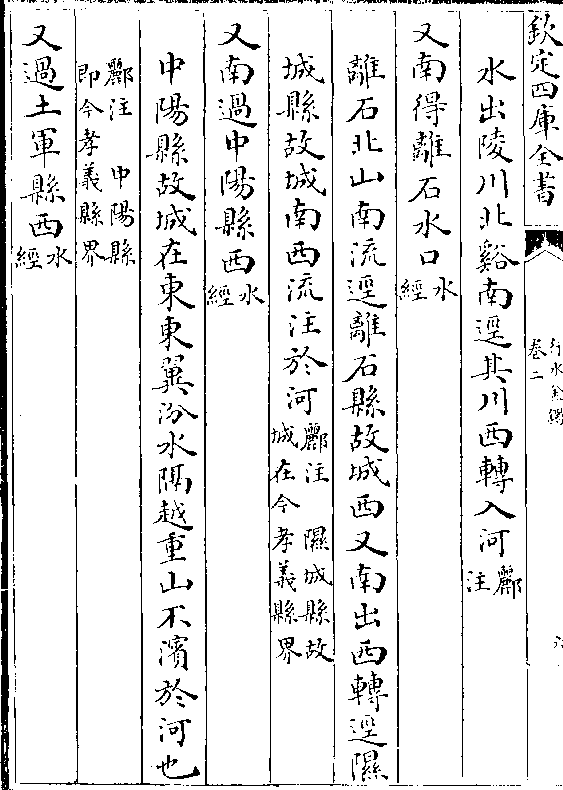 欽定四庫全書
行水金鑑
卷二
六
水出陵川北谿南逕其川西轉入河酈
注
又南得離石水口水
經
離石北山南流逕離石縣故城西又南出西轉逕隰
城縣故城南西流注於河酈注 隰城縣故
城在今孝義縣界
又南過中陽縣西水
經
中陽縣故城在東東翼汾水隔越重山不濱於河也
酈注 中陽縣
即今孝義縣界
又過土軍縣西水
經